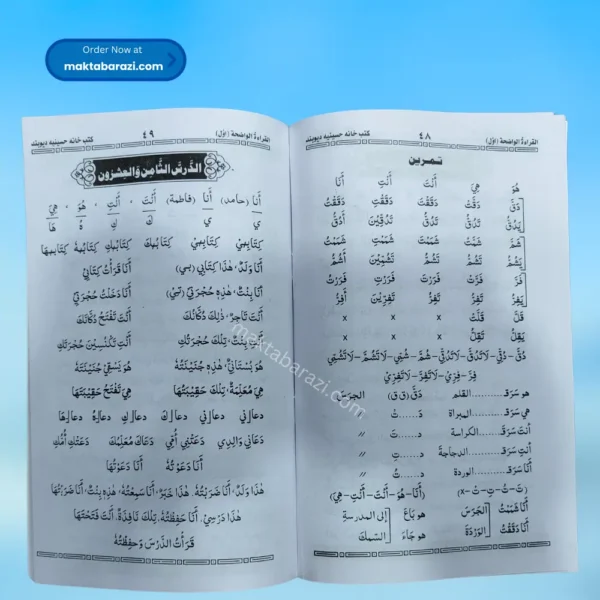 Order Now at
maktabarazi.com
القراءة الواضحة (اوّل) ٤٨ كتب خانه حسينيه ديوبند
تمرين
هُوَ هِيَ أَنْتَ أَنْتِ أَنَا
دَقَّ دَقَّتْ دَقَقْتَ دَقَقْتِ دَقَقْتُ
يَدُقُّ تَدُقُّ تَدُقُّ تَدُقِّيْنَ أَدُقُّ
شَمَّ شَمَّتْ شَمَمْتَ شَمَمْتِ شَمَمْتُ
يَشُمُّ تَشُمُّ تَشُمُّ تَشُمِّيْنَ أَشُمُّ
فَرَّ فَرَّتْ فَرَرْتَ فَرَرْتِ فَرَرْتُ
يَفِرُّ تَفِرُّ تَفِرُّ تَفِرِّيْنَ أَفِرُّ
قَلَّ قَلَّتْ x x x
يَقِلُّ تَقِلُّ x x x
دُقَّ – دُقِّي – لَاتَدُقَّ – لَاتَدُقِّي – شُمَّ – شُمِّي – لَاتَشُمَّ – لَاتَشُمِّي
فِرَّ – فِرِّي – لَاتَفِرَّ – لَاتَفِرِّي
هو سَرَقَ.........القلم دَقَّ (ق ق) الجرَس
هي سَرَقَـ.........المبراة دَ........تْ 〃
أنتَ سَرَقَـ.........الكراسة دَ........تَ 〃
أنتِ سَرَقَـ.........الدجاجة دَ........تِ 〃
أنَا سَرَقَـ.........الوردة دَ........تُ 〃
(تَ – تُ – تِ – تْ – x) (أَنَا – هُوَ – أَنْتَ – أَنْتِ – هِيَ)
أَنَا شَمَمْتُ الجَرَسَ هو بَاعَ إلى المدرسةِ
أَنَا دَقَقْتُ الوَرْدَةَ هو جَاءَ السَّمَكَ
القراءة الواضحة (اوّل) ٤٩ كتب خانه حسينيه ديوبند
الدَّرسُ الثَّامِنُ وَالْعِشْرُوْنَ
أَنَا (حامد) أَنَا (فاطمة) أَنْتَ، أَنْتِ، هُوَ، هِيَ
ي ي كَ كِ هُ هَا
كِتَابِيْ كِتَابِيْ كِتَابُكَ كِتَابُكِ كِتَابُهُ كِتَابُهَا
أَنَا وَلَدٌ، هٰذَا كِتَابِي (ـي) أَنَا قَرَأْتُ كِتَابِي
أَنَا بِنْتٌ، هٰذِهِ حُجْرَتِيْ (ـتِيْ) أَنَا دَخَلْتُ حُجْرَتِيْ
أَنْتَ تَاجِرٌ، ذٰلِكَ دُكَّانُكَ أَنْتَ تَفْتَحُ دُكَّانَكَ
أَنْتِ بِنْتٌ، تِلْكَ حُجْرَتُكِ أَنْتِ تَكْنُسِيْنَ حُجْرَتَكِ
هُوَ بُسْتَانِيٌّ، هٰذِهِ جُنَيْنَتُهُ هُوَ يَسْقِيْ جُنَيْنَتَهُ
هِيَ مُعَلِّمَةٌ، تِلْكَ حَقِيْبَتُهَا هِيَ تَفْتَحُ حَقِيْبَتَهَا
دعانِي دعانِي دعاكَ دعاكِ دعاهُ دعاها
دَعَانِي وَالِدِي دَعَتْنِي أُمِّي دَعَاكَ مُعَلِّمُكَ دَعَتْكِ أُمُّكِ
أَنَا دَعَوْتُهُ أَنَا دَعَوْتُهَا
هٰذَا وَلَدٌ، أَنَا ضَرَبْتُهُ. هٰذَا خَبَرٌ، أَنَا سَمِعْتُهُ، هٰذِهِ بِنْتٌ، أَنَا ضَرَبْتُهَا
هٰذَا دَرْسِيْ، أَنَا حَفِظْتُهُ. تِلْكَ نَافِذَةٌ، أَنْتَ فَتَحْتَهَا
قَرَأْتُ الدَّرْسَ وَحَفِظْتُهُ
maktabarazi.com